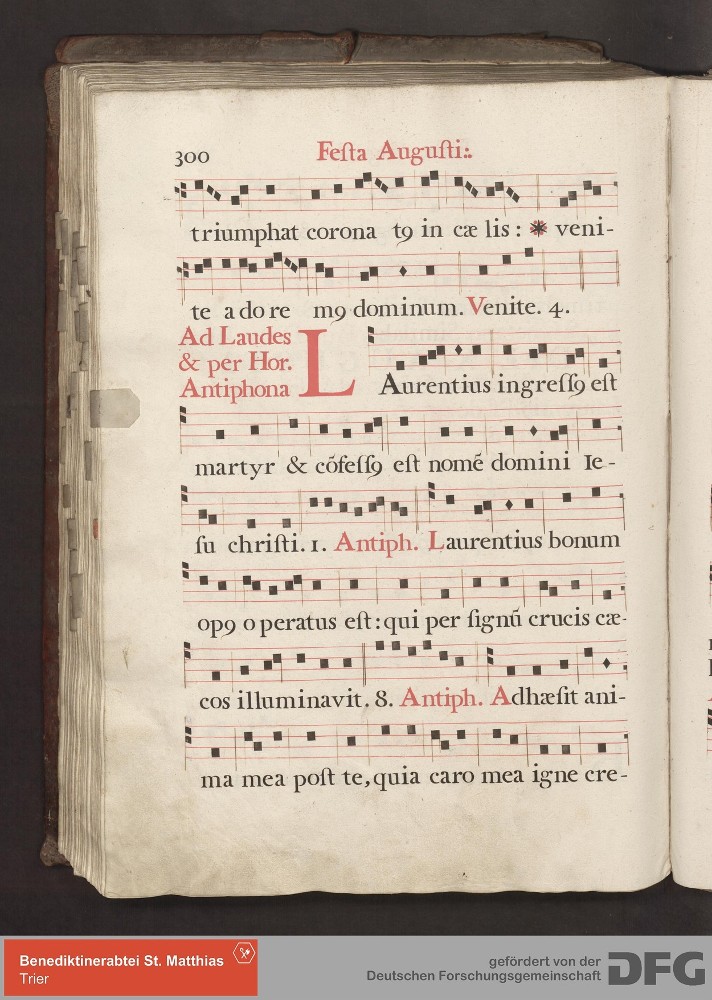 300 Feſta Auguſti:.
triumphat corona t9 in cæ lis : ✷ veni-
te adore m9 dominum. Venite. 4.
Ad Laudes
& per Hor.
Antiphona
LAurentius ingreſſ9 eſt
martyr & cõfeſſ9 eſt nomẽ domini Ie-
ſu chriſti. 1. Antiph. Laurentius bonum
op9 operatus eſt : qui per ſignũ crucis cæ-
cos illuminavit. 8. Antiph. Adhæſit ani-
ma mea poſt te, quia caro mea igne cre-
Benediktinerabtei St. Matthias
Trier
gefördert von der
Deutschen Forschungsgemeinschaft
DFG